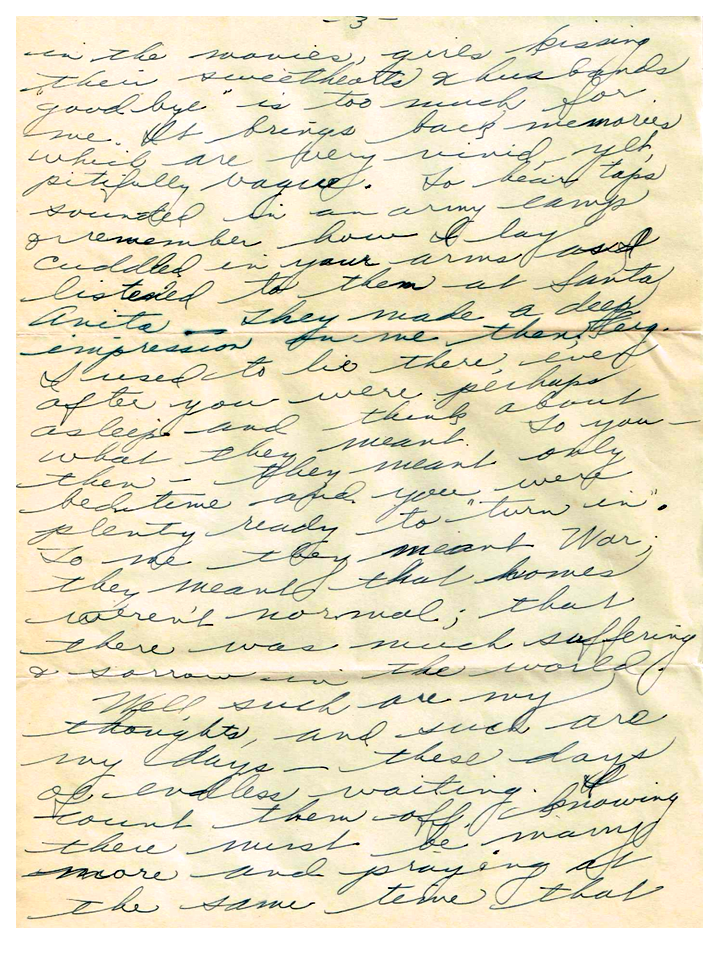 - 3 -
in the movies, girls kissing
their sweethearts & husbands
"good bye" is too much for
me. It brings back memories
which are very vivid, yet,
pitifully vague. To hear taps
sounded in an army camp
& remember how I lay
cuddled in your arms and
listened to them at Santa
Anita — They made a deep
impression on me then,
I used to lie there, even
after you were perhaps
asleep and think about
what they meant. To you —
then — they meant only
bedtime and you were
plenty ready to "turn in".
To me they meant War;
they meant that homes
weren't normal; that
there was much suffering
& sorrow in the world.
Well, such are my
thoughts, and such are
my days — these days
of endless waiting. I
count them off. Knowing
there must be many
more and praying at
the same time that